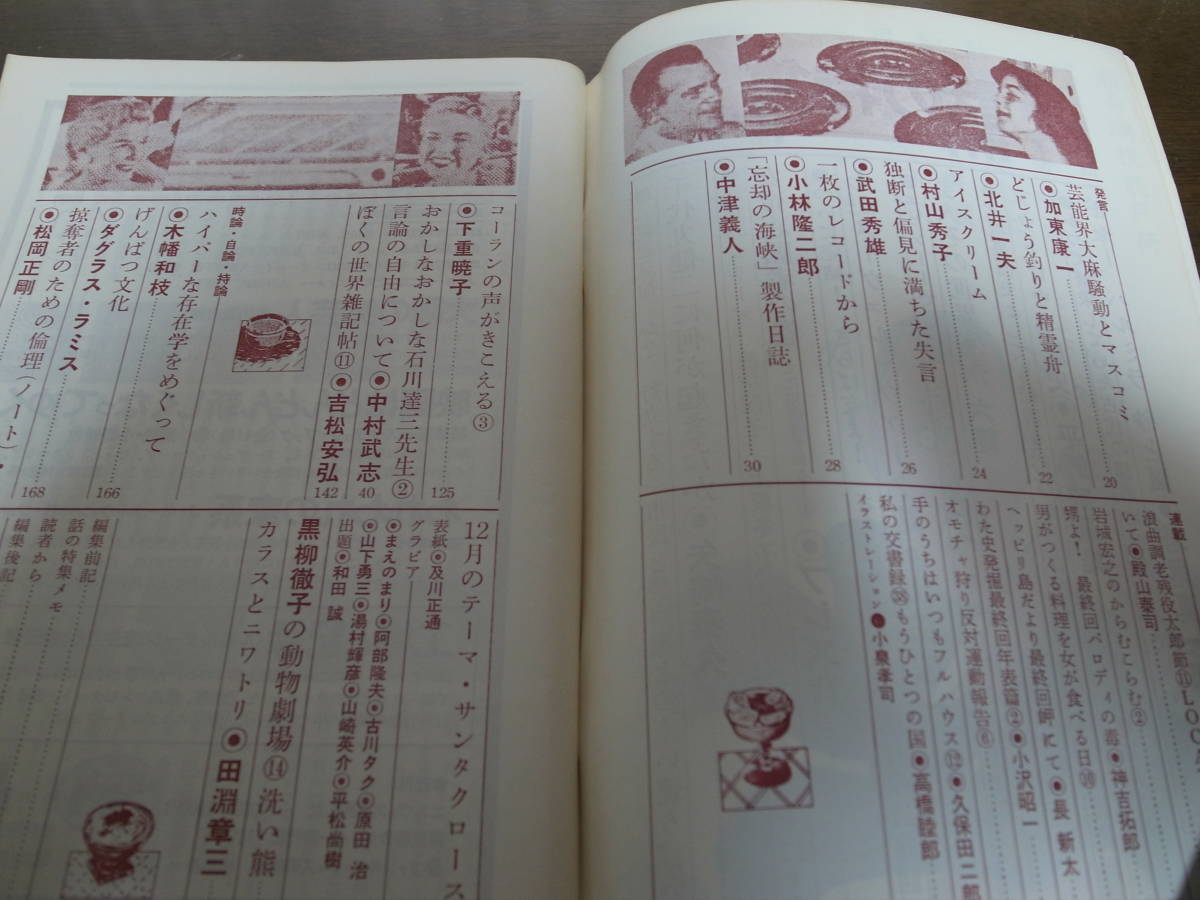 発言
芸能界大麻騒動とマスコミ
●加東康一 20
どじょう釣りと精霊舟
●北井一夫 22
アイスクリーム
●村山秀子 24
独断と偏見に満ちた失言
●武田秀雄 26
一枚のレコードから
●小林隆二郎 28
「忘却の海峡」製作日誌
●中津義人 30
連載
浪曲調老残役太郎節⑪LOC
いて●殿山泰司
岩城宏之のからむこらむ②
甥よ! 最終回パロディの毒●神吉拓郎
男がつくる料理を女が食べる日⑩
ヘッピリ島だより最終回岬にて●長新太
わた史発掘最終回年表篇②●小沢昭一
オモチャ狩り反対運動報告⑥
手のうちはいつもフルハウス⑫●久保田二郎
私の交書録㊳もうひとつの国●高橋睦郎
イラストレーション●小泉孝司
コーランの声がきこえる③
●下重暁子 125
おかしなおかしな石川達三先生②
言論の自由について●中村武志 40
ぼくの世界雑記帖⑪●吉松安弘 142
時論・自論・持論
ハイパーな存在学をめぐって
●木幡和枝
げんばつ文化
●ダグラス・ラミス 166
掠奪者のための倫理(ノート)・
●松岡正剛 168
12月のテーマ・サンタクロース
表紙●及川正通
グラビア
●まえのまり●阿部隆夫●古川タク●原田治
●山下勇三●湯村輝彦●山崎英介●平松尚樹
出題●和田誠
黒柳徹子の動物劇場⑭洗い熊
カラスとニワトリ●田淵章三
編集前記
話の特集メモ
読者から
編集後記